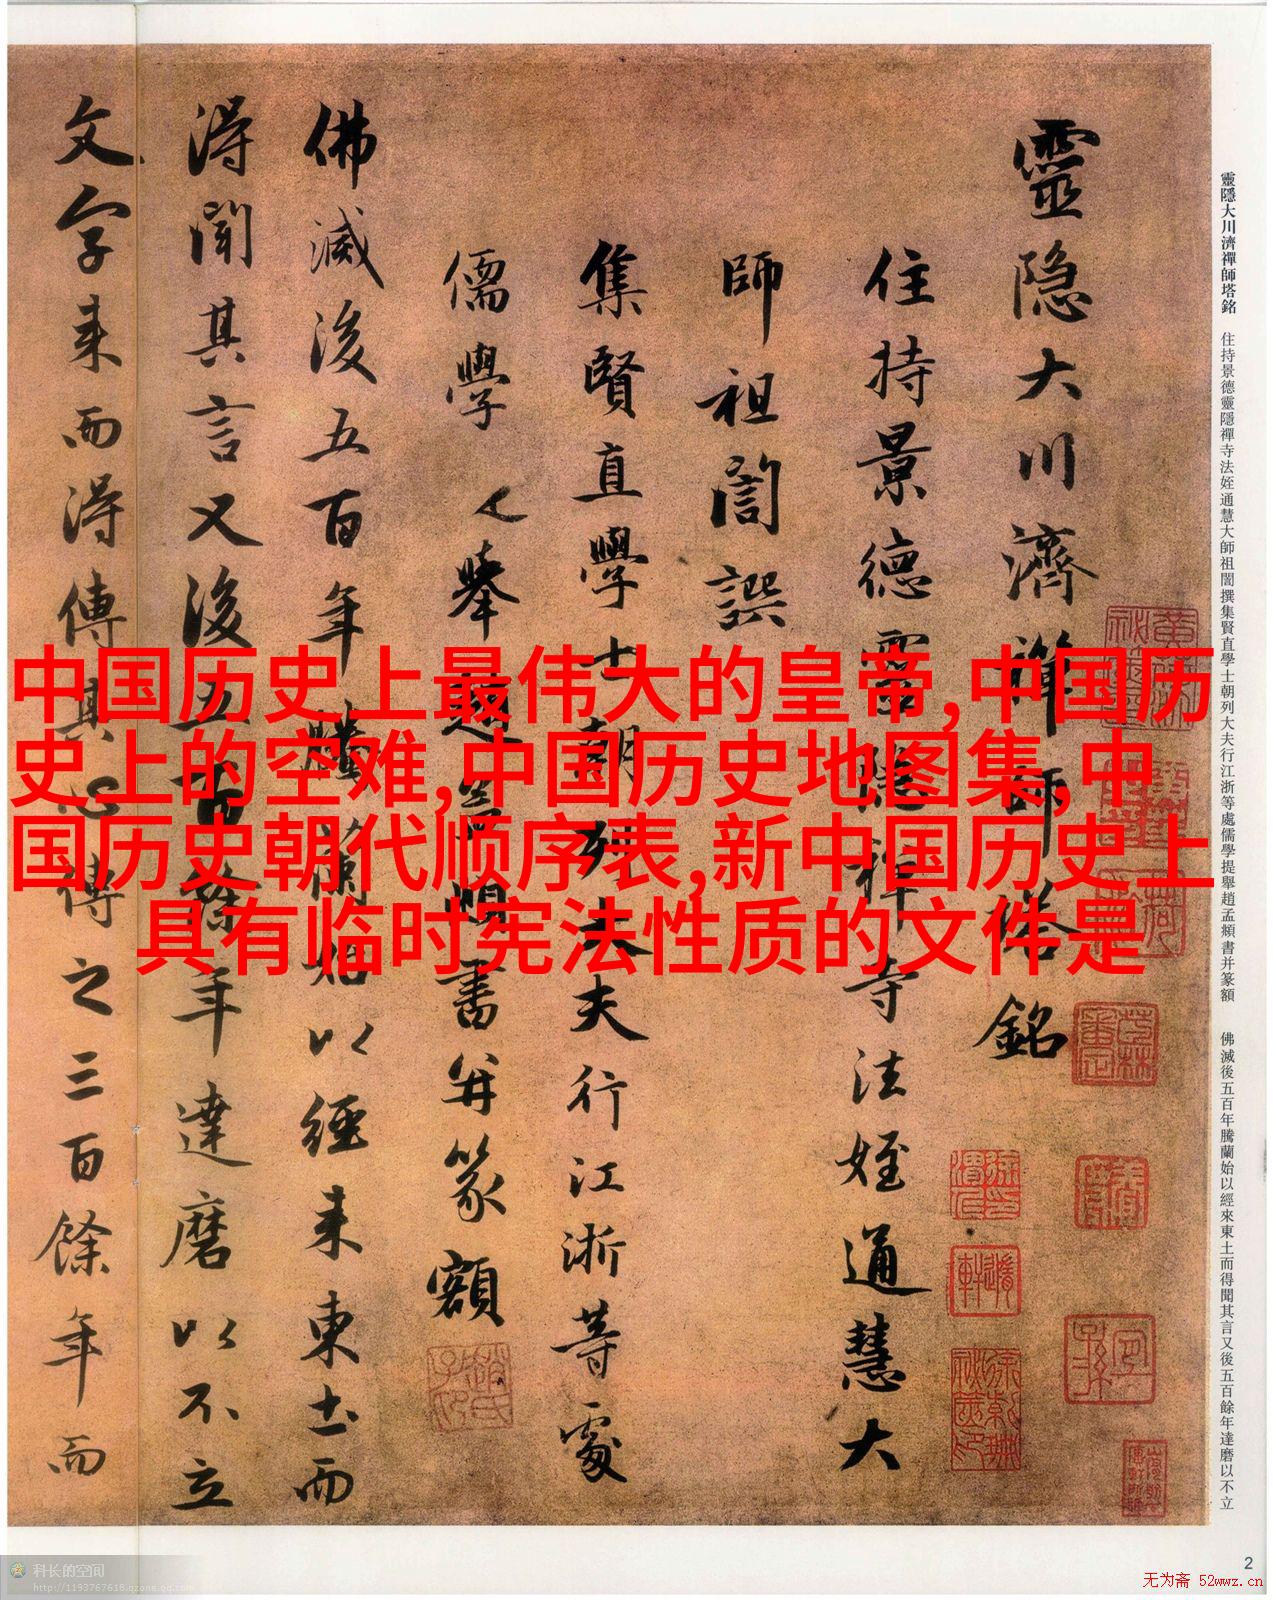 靈隐大川濟禪師塔銘
住持景德靈隐禅寺法姪通慧大
師祖誾譔
集賢直學士朝列大夫行江浙等處
儒學提舉趙孟頫書并篆額
佛滅後五百年騰蘭始以經来東土而
淂聞其言又後五百餘年達磨以不立
文字来而淂傳其心傳之三百餘年而
靈隱大川濟禪師塔銘 住持景德靈隱禪寺法姪通慧大師祖誾撰集賢直學士朝列大夫行江浙等處儒學提舉趙孟頫書并篆額 佛滅後五百年騰蘭始以經來東土而得聞其言又後五百餘年達磨以不立
中国历史上最伟大的皇帝,中国历
史上的空难,中国历史地图集,中
国历史朝代顺序表,新中国历史上
具有临时宪法性质的文件是
2
科长的空间
http://1193767618.qzone.qq.com
无为斋 52wwz.cn